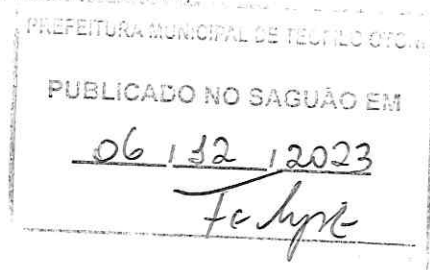 PREFEITURA MUNICIPAL DE TEOFILO OTONI
PUBLICADO NO SAGUÃO EM
06 / 12 / 2023